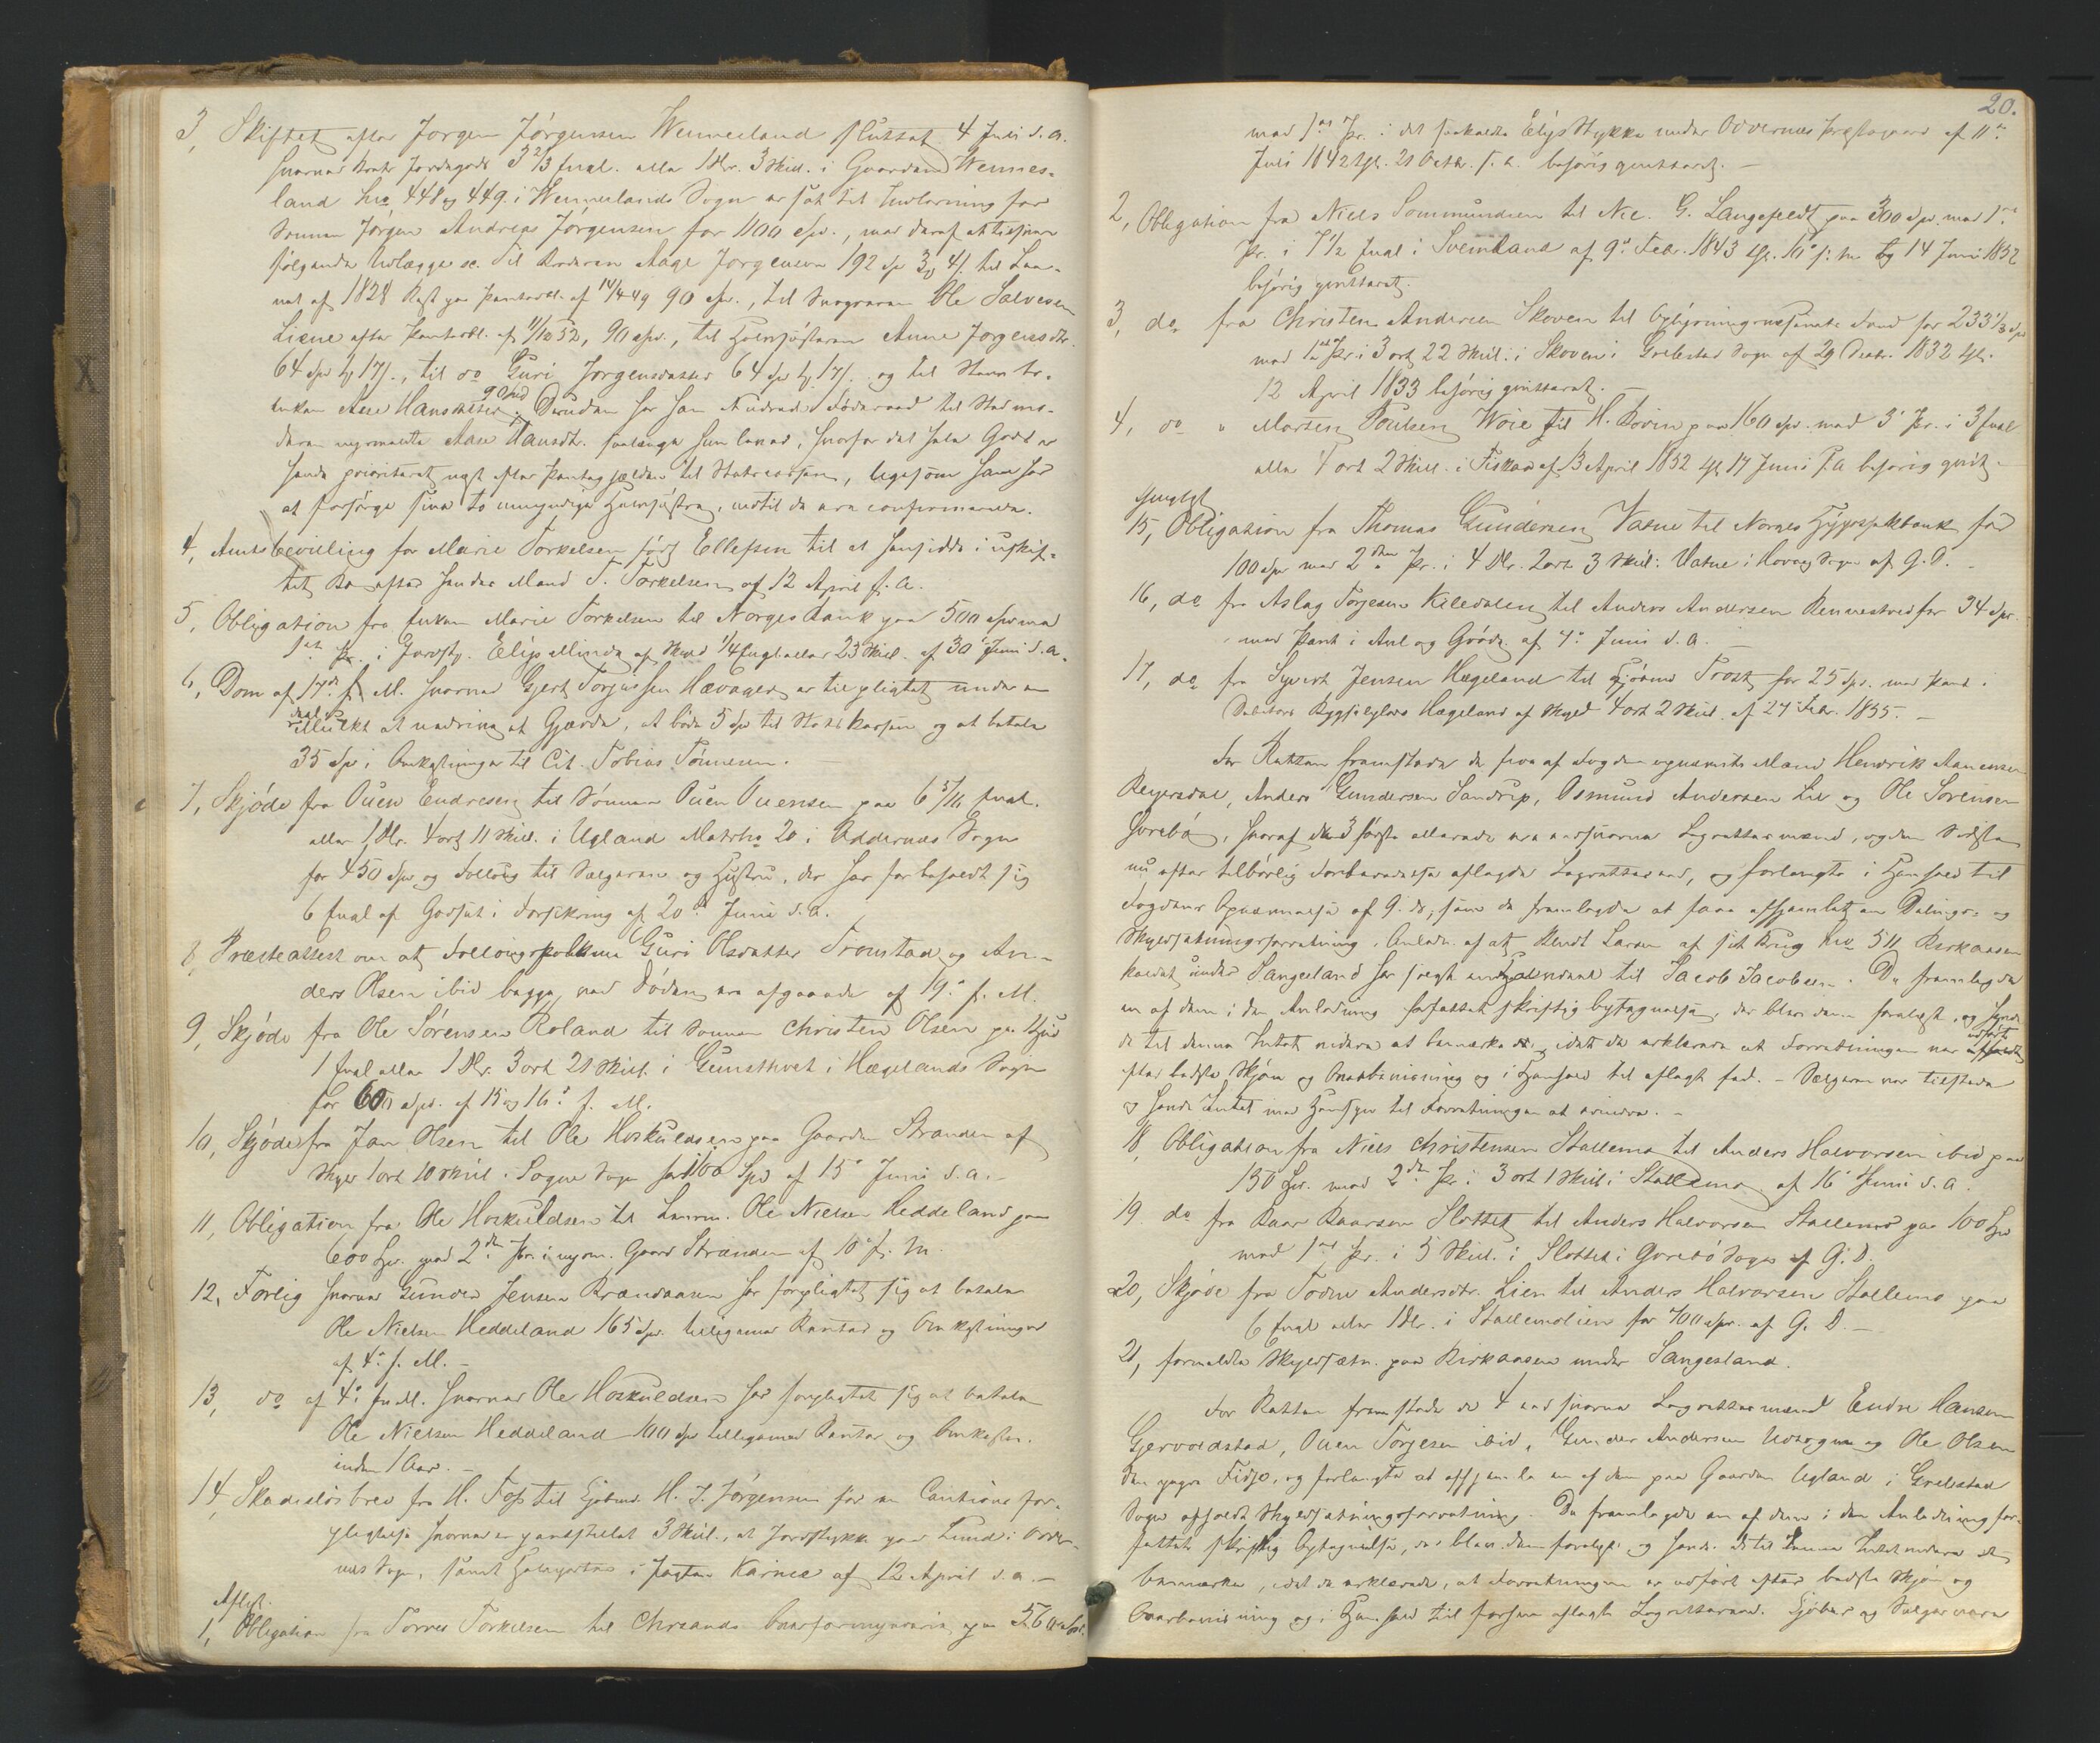 3, Skiftet efter Jørgen Jörgensen Wennesland sluttet 4 Juli d. a.
hvorved Boets Jordegods 3 2/3 Engl. eller 1 Dlr. 3 Skill. i Gaarden Wennes-
land Lno 448 og 449 i Wenneslands Sogn er sat til Indløsning for
Sønnen Jörgen Andreas Jörgensen for 1100 Spd., med deraf at tilsvare
følgende Udlægge sc. Til Broderen Aage Jørgensen 192 Sp 3 4 s. til Laa-
net af 1828 Rest paa Pantobl. af 14/4 49 90 Spd., til Svogeren Ole Salvesen
Liene efter Pantobl. af 11/10 52, 90 Spd., til Halvsøsteren Anne Jørgensdtr.
64 Spd 17 s., til do Guri Jørgensdatter 64 Spd 17 s. og til Stervbo-
enken Aase Hansdatter 90 Spd. Desuden har han Föderaad til Stedmo-
deren nysnævnte Aase Hansdtr. saalænge hun lever, hvorfor det hele Gods er
hende prioriteret næst efter Pantegjælden til Statscassen, ligesom han har
at forsørge sine to umyndige Halvsøstre, indtil de ere confirmerede.
4, Amtsbevilling for Marie Torkelsen født Ellefsen til at hensidde i uskif-
tet Bo efter hendes Mand T. Torkelsen af 12 April s. a.
5, Obligation fra Enken Marie Torkelsen til Norges Bank paa 500 Spd med
1ste Pr. i Jordst. Elisesminde af Skyld 1/4 Engl eller 23 Skill. af 30 Juni d. a.
6, Dom af 17de f. M. hvorved Gjert Torgiussen Hævager er tilpligtet under en
daglig Mulkt at nedrive et Gjærde, at bøde 5 Sp til Statskassen og at betale
35 Sp i Omkostninger til Cit. Tobias Tönnesen.
7, Skjöde fra Ouen Endresen til Sønnen Ouen Ouensen paa 6 5/16 Engl.
eller 1 Dlr. 4 ort 11 Skill. i Ugland Matr No 20 i Oddernes Sogn
for 450 Spd og Follaug til Sælgeren og Hustru, der har forbeholdt sig
6 Engl af Godset i Forsikring af 20de Juni d. a.
8, Præsteattest om at Follaugsfolkene Guri Olsdatter Tronstad og An-
ders Olsen ibid begge ved Døden ere afgaaede af 19 f. M.
9, Skjöde fra Ole Sörensen Roland til Sønnen Christen Olsen paa Hud
1 Engl eller 1 Dlr. 3 ort 21 Skill. i Gumsthvet i Hægelands Sogn
for 600 Spd. af 15 og 16 f. M.
10, Skjöde fra Jan Olsen til Ole Hoskuldsen paa Gaarden Stranden af
Skyld 1 ort 10 Skill. i Sogne Sogn for 1100 Spd af 15 Juni d. a.
11, Obligation fra Ole Hoskuldsen til Lensm. Ole Nielsen Heddeland paa
600 Sp. med 2den Pr. i nysn. Gaard Stranden af 10 f. M.
12, Forlig hvorved Gunder Jensen Brændaasen har forpligtet sig at betale
Ole Nielsen Heddeland 165 Spd. tilligemed Renter og Omkostninger
af 4 f. M. –
13, do af 4 f. M. hvorved Ole Hoskuldsen har forpligtet sig at betale
Ole Nielsen Heddeland 100 Sp tilligemed Renter og Omkostn.
inden 1 Aar. –
14, Skadeslösbrev fra H. Foss til Kjøbmd. H. J. Jørgensen for en Cautions for-
pligtelse hvorved er pantstillet 3 Skill., et Jordstykke paa Lund i Odder-
nes Sogn, samt Halvparten i Jagten Karine af 12 April d. a. –
Aflyst.
1, Obligation fra Torres Torkelsen til Chrsands Overformynderie paa 560 Spd.
20.
med 1ste Pr. i det saakaldte Elys Stykke under Oddernes Præstegaard af 11
Juli 1842 tgl. 21 Octbr. s. a. behørig qvitteret. –
2, Obligation fra Niels Sommundsen til Nic. G. Langefeldt paa 300 Spd. med 1ste
Pr. i 7 1/2 Engl i Sveinland af 9 Febr. 1843 tgl. 16 s. M. og 14 Juni 1852
behørig qvitteret.
3, do fra Christen Andersen Skoven til Oplysningsvæsenets Fond for 233 1/3 Spd
med 1ste Pr. i 3 ort 22 Skill. i Skoven i Grebstad Sogn af 29 Decbr. 1832 tgl.
12 April 1833 behørig qvitteret. –
4, do " Morten Poulsen Woie til H. Rovin paa 160 Spd. med 3 Pr. i 3 Engl
eller 4 ort 2 Skill. i Fiskaa af 13 April 1852 tgl 17 Juni s. a behørig qvit. –
Thinglyst
15, Obligation fra Thomas Gundersen Vatne til Norges Hypothekbank for
100 Spd med 2den Pr. i 4 Dlr. 2 ort 3 Skill. Vatne i Hovaag Sogn af G. D. –
16, do fra Aslag Torjesen Kiledalen til Anders Andersen Rennestved for 34 Spd.
med Pant i Avl og Grøde af 4 Juni d. a. –
17, do fra Syvert Jensen Hægeland til Kjøbmd Trost for 25 Spd. med Pant i
Debitors Bygselgods Hægeland af Skyld 4 ort 2 Skill. af 27 Febr. 1855. –
For Retten fremstode de fire af Fogden opnævnte Mænd Henrik Aanensen
Reiersdal, Anders Gundersen Sandrip, Osmund Andersen Lie og Ole Sørensen
Herebö, hvoraf de 3 første allerede ere eedsvorne Lagrettesmænd, og den Sidste
nu efter tilbørlig Forberedelse aflagde Lagretteseed, og forlangte i Henhold til
Fogdens Opnævnelse af 9 ds., som de fremlagde at faae afhjemlet en Delings- og
Skyldsætningsforretning, Anledn. af at Bendt Larsen af sit Brug Lno 511 Birkaasen
kaldet under Sangesland har solgt en Halvdeel til Jacob Jacobsen. De fremlagde
en af dem i den Anledning forfattet skriftlig Optegnelse, der blev dem forelæst, og havde
de til denne Intet videre at bemærke, idet de erklærede at Forretningen var udført
efter bedste Skjøn og Overbeviisning og i Henhold til aflagt Eed. – Sælgeren var tilstede
og havde Intet med Hensyn til Forretningen at erindre. –
18, Obligation fra Niels Christensen Stallemo til Anders Halvorsen ibid paa
150 Sp. med 2den Pr. i 3 ort 1 Skill i Stallemo af 16 Juni d. a.
19 do fra Baar Baarsen Slottet til Anders Halvorsen Stallemo paa 100 Sp
med 1ste Pr. i 5 Skill. i Slottet i Greibö Sogn af G. D.
20, Skjøde fra Todne Andersdtr. Lien til Anders Halvorsen Stallemo paa
6 Engl eller 1 Dlr. i Stallemolien for 700 Spd. af G. D. –
21, formeldte Skyldsætn. paa Birkaasen under Sangesland.
For Retten fremstode de 4 eedsvorne Lagrettesmænd Endre Hansen
Gjervoldstad, Ouen Torjesen ibid, Gunder Andersen Udsogn og Ole Olsen
den yngre Fidje, og forlangte at afhjemle en af dem paa Gaarden Ugland i Grebstad
Sogn afholdt Skyldsætningsforretning. De fremlagde en af dem i den Anledning for-
fattet skriftlig Optegnelse, der blev dem forelæst og havde de til denne Intet videre at
bemærke, idet de erklærede, at Forretningen er udført efter bedste Skjøn og
Overbeviisning og i Henhold til forhen aflagt Lagretteseed. Kjøber og Sælger vare